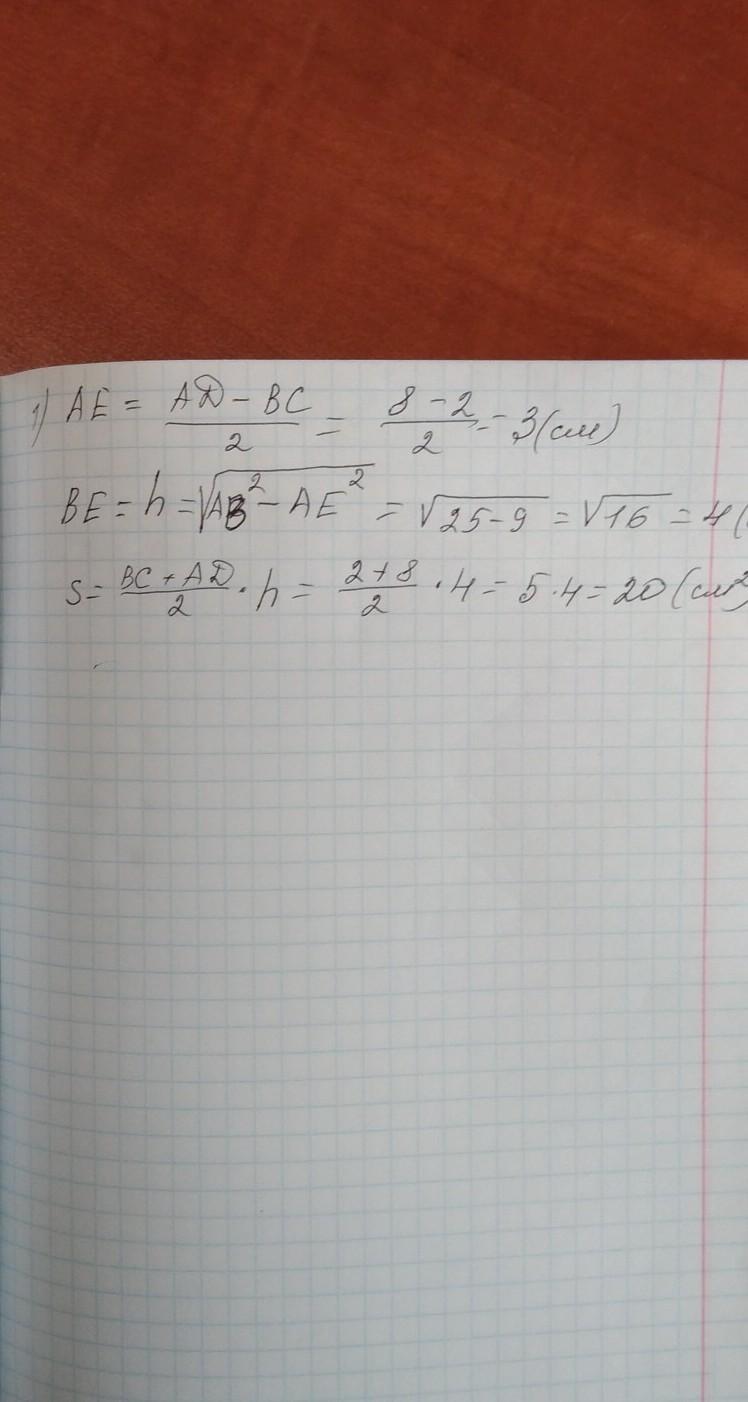 1) AE = (AD − BC)/2 = (8 − 2)/2 = 3(см)
BE = h = √(AB² − AE²) = √(25−9) = √16 = 4(
S = (BC + AD)/2 · h = (2+8)/2 · 4 = 5·4 = 20 (см²